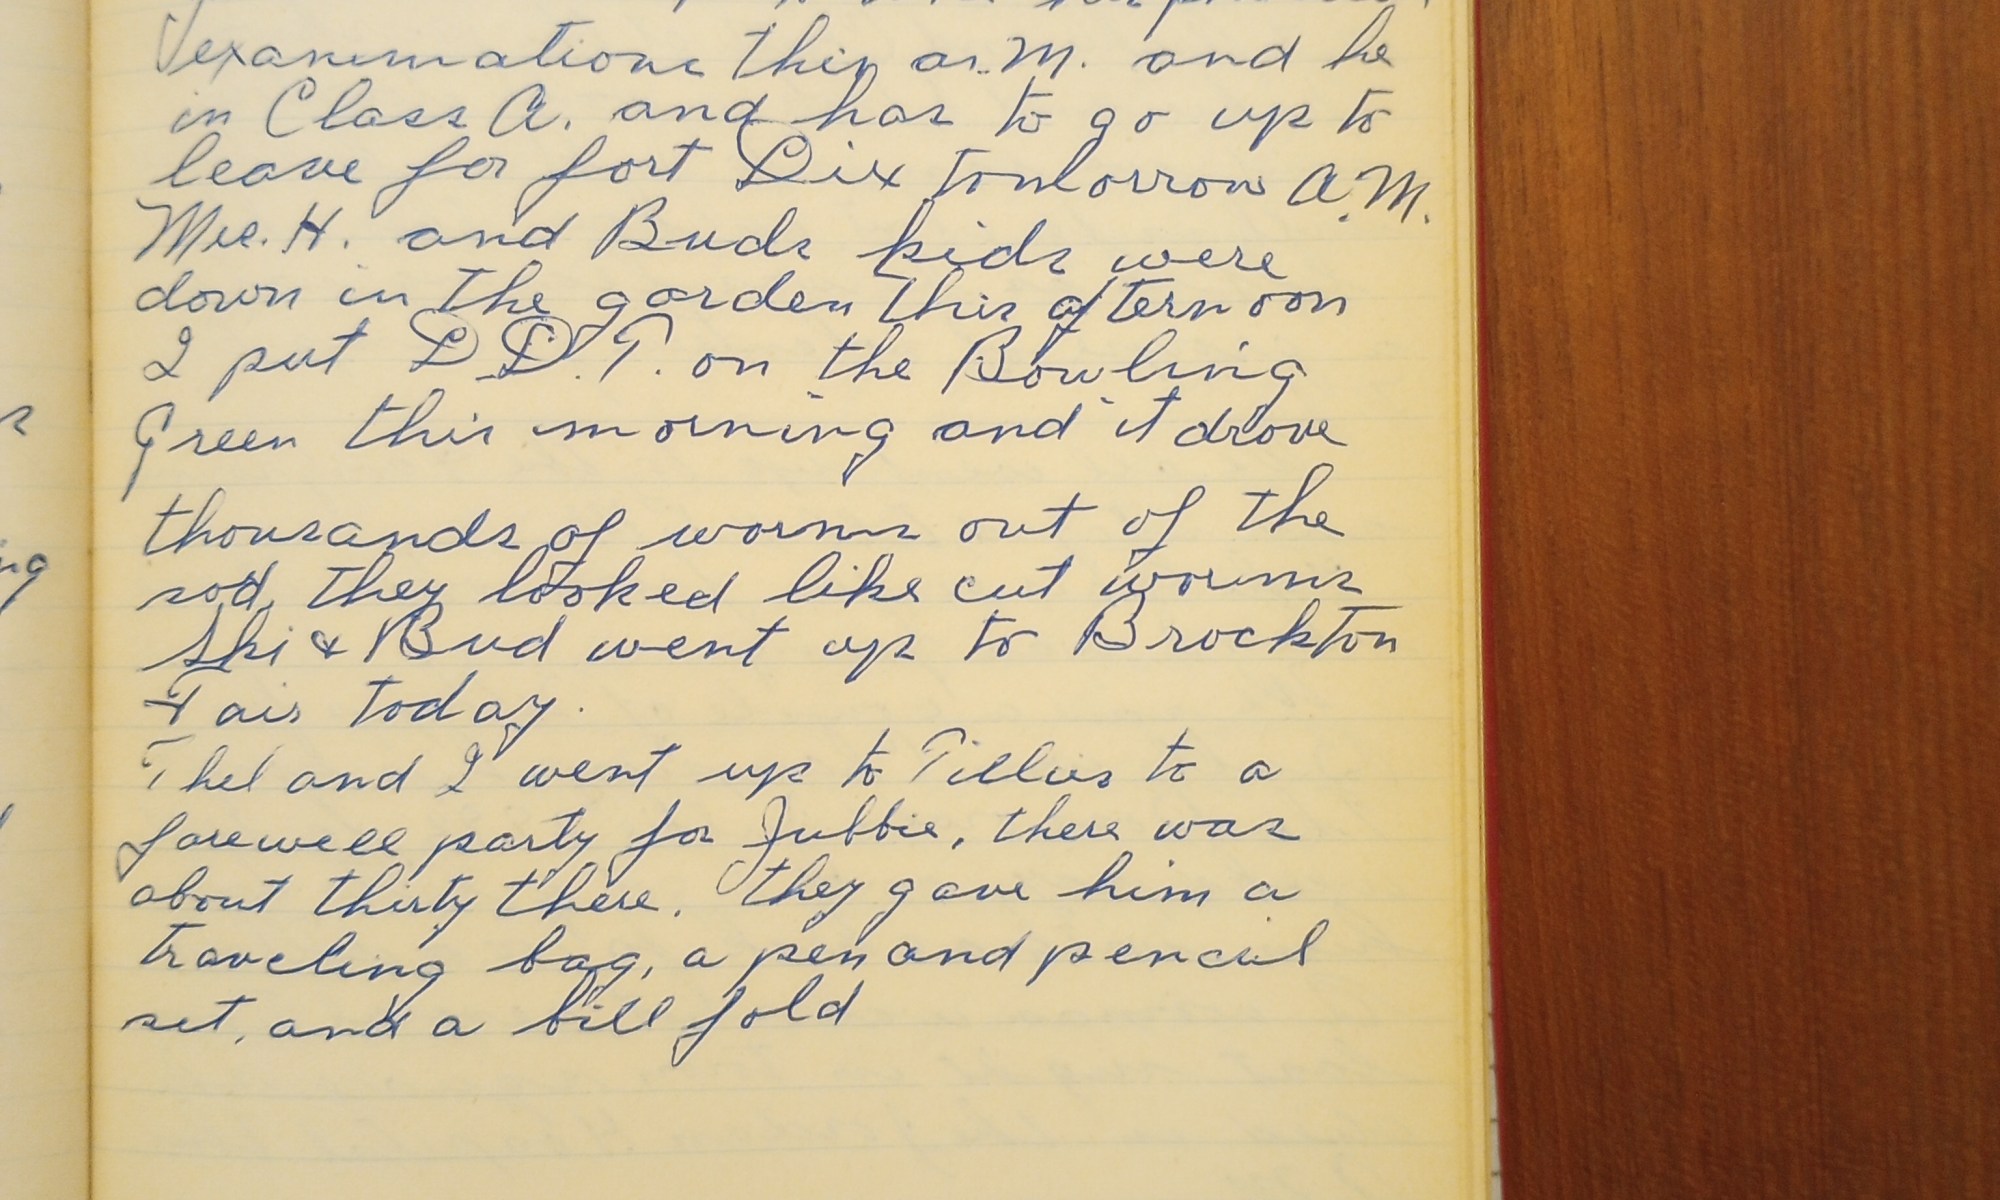 examinations this a.m. and he
in Class A. and has to go up to
leave for fort Dix tomorrow A.M.
Mrs. H. and Buds kids were
down in the garden this afternoon
I put D.D.T. on the Bowling
Green this morning and it drove
thousands of worms out of the
sod, they looked like cut worms
Ski & Bud went up to Brockton
Fair today.
Thel and I went up to Tillies to a
farewell party for Jubbie, there was
about thirty there. they gave him a
traveling bag, a pen and pencil
set, and a bill fold